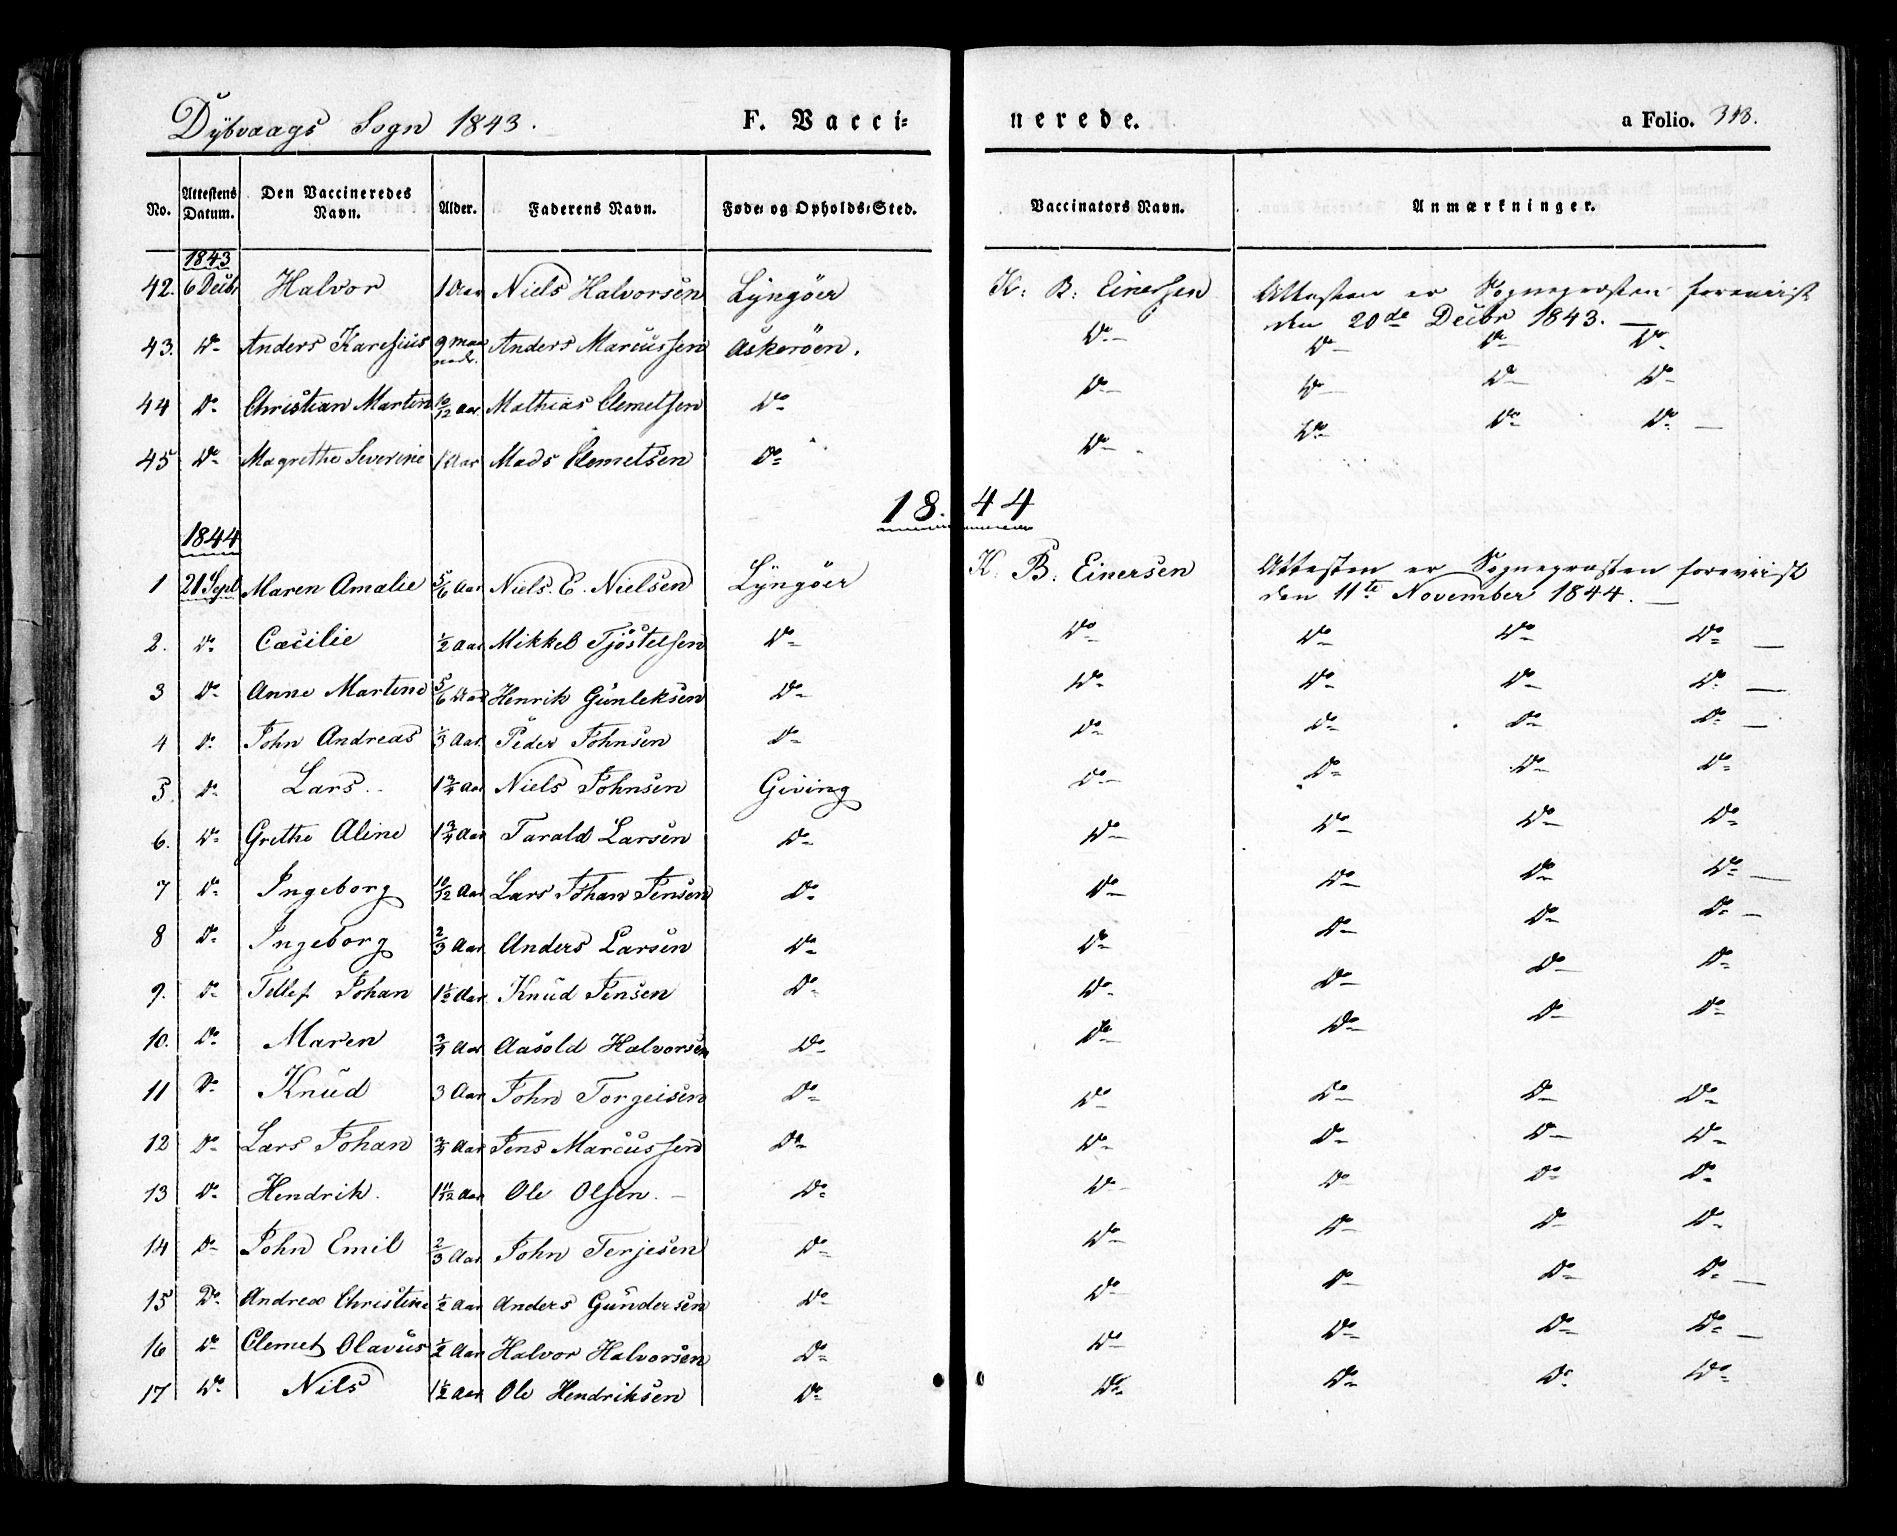 Dybvaags Sogn 1843. F. Vaccinerede. a Folio. 318.
No. Attestens Datum. Den Vaccineredes Navn. Alder. Faderens Navn. Føde- og Opholds-Sted. Vaccinators Navn. Anmærkninger.
1843
42. 6 Decbr Halvor 1 Aar Niels Halvorsen Lyngöer K: B: Einersen Attesten er Sognepræsten foreviist
den 20de Decbr 1843. —
43. Do Anders Karesius 9 maaneder Anders Marcussen Askeröen. Do Do Do Do
44 Do Christian Martin 10/12 Aar Mathias Clemetsen Do Do Do Do Do
45 Do Magrethe Severine 1 Aar Mads Clemetsen Do Do Do Do Do
1844
1844
1 21 Sept Maren Amalie 5/6 Aar Niels E. Nielsen Lyngöer K. B. Einersen Attesten er Sognepræsten foreviist
den 11te November 1844. —
2. Do Cæcilie 1/2 Aar Mikkel Tjöstelsen Do Do Do Do Do
3 Do Anne Martine 5/6 Aar Henrik Gunleksen Do Do Do Do Do
4 Do John Andreas 1/3 Aar Peder Johnsen Do Do Do Do Do
5. Do Lars 1 3/4 Aar Niels Johnsen Giving Do Do Do Do
6. Do Grethe Aline 1 3/4 Aar Tarald Larsen Do Do Do Do Do
7 Do Ingeborg 10/12 Aar Lars Johan Jensen Do Do Do Do Do
8 Do Ingeborg 2/3 Aar Anders Larsen Do Do Do Do Do
9. Do Tellef Johan 1 1/2 Aar Knud Jensen Do Do Do Do Do
10. Do Maren 3/4 Aar Aasold Halvorsen Do Do Do Do Do
11 Do Knud 3 Aar John Torgeisen Do Do Do Do Do
12 Do Lars Johan 3/4 Aar Jens Marcussen Do Do Do Do Do
13 Do Hendrik 1 11/12 Aar Ole Olsen. Do Do Do Do Do
14 Do John Emil 2/3 Aar John Terjesen Do Do Do Do Do
15 Do Andrea Christine 1/2 Aar Anders Gundersen Do Do Do Do Do
16 Do Clemet Olavus 1/2 Aar Halvor Halvorsen Do Do Do Do Do
17 Do Nils 1 1/2 Aar Ole Hendriksen Do Do Do Do Do